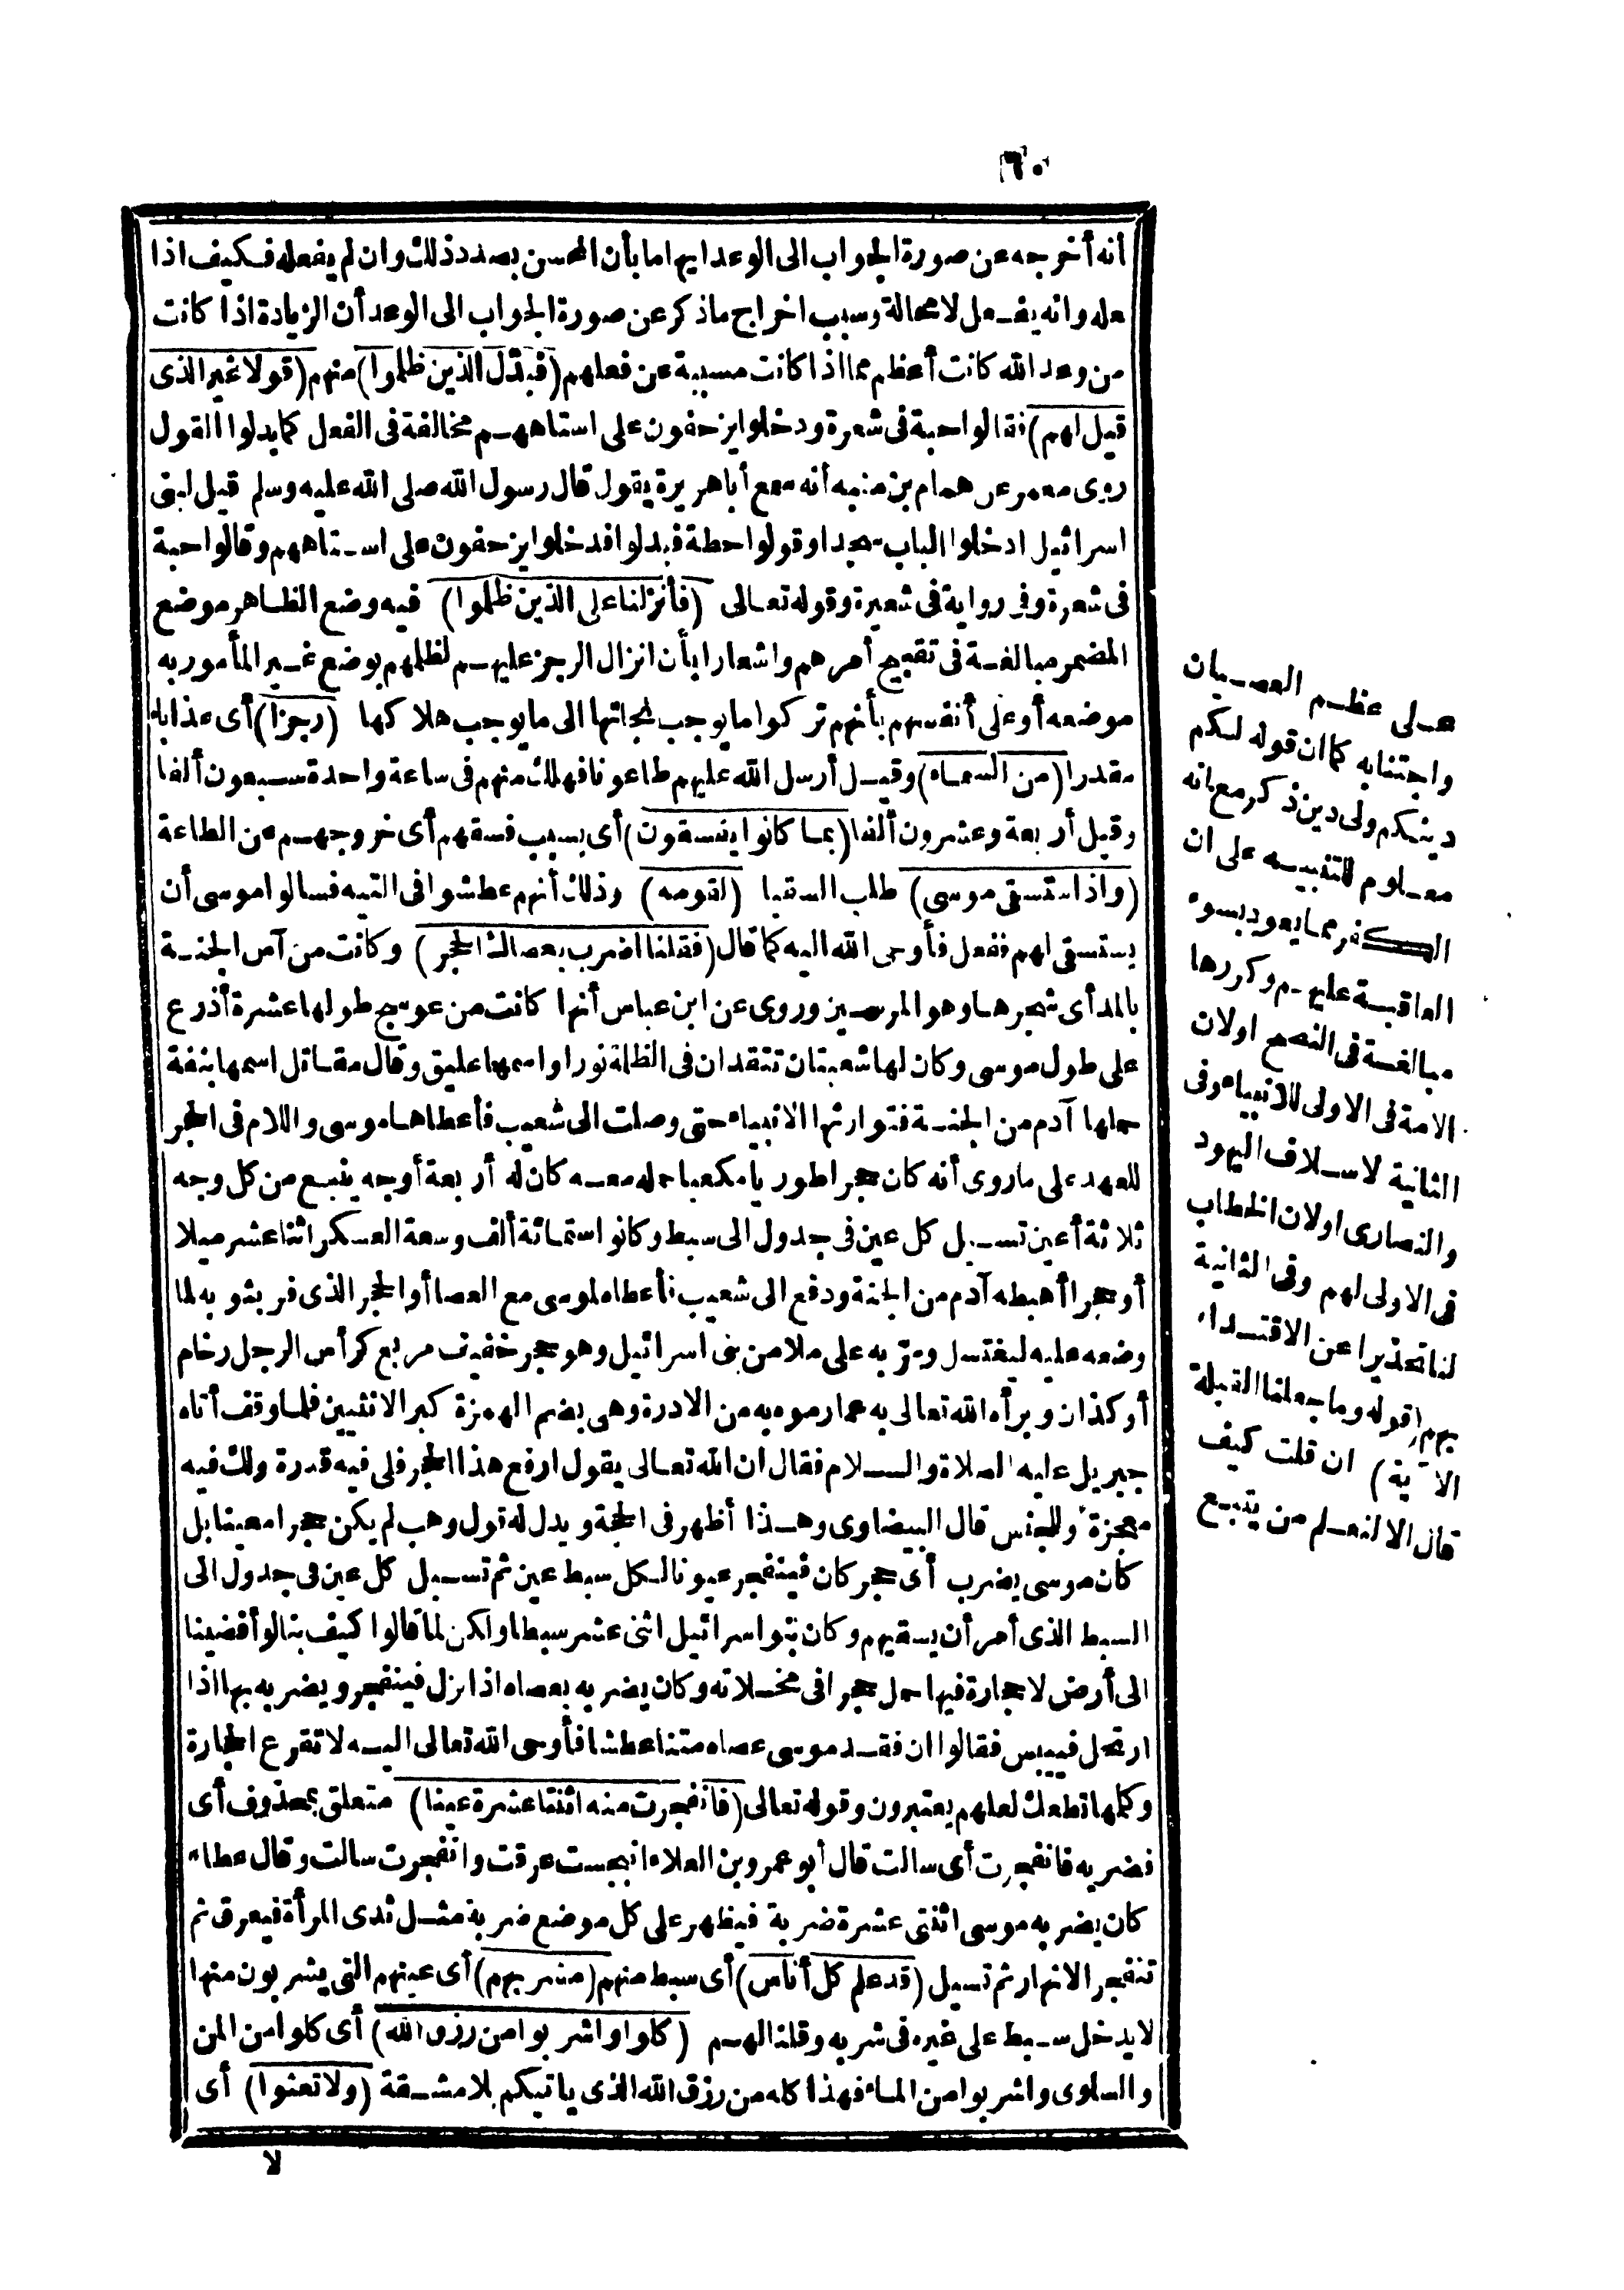 ٦٠
أنه أخرجه عن صورة الجواب الى الوعد ايهاما بأن المحسن بصدد ذلك وان لم يفعله فكيف اذا
عله وانه يفعل لا محالة وسبب اخراج ماذكر عن صورة الجواب الى الوعد أن الزيادة اذا كانت
من وعد الله كانت أعظم مما اذا كانت مسببة عن فعلهم (فبدّل الذين ظلموا) منهم (قولا غير الذى
قيل لهم) فقالوا حبة فى شعرة ودخلوا يزحفون على استاههم مخالفة فى الفعل كما بدلوا القول
روى معمر عن همام بن منبه أنه سمع أبا هريرة يقول قال رسول الله صلى الله عليه وسلم قيل لبنى
اسرائيل ادخلوا الباب سجدا وقولوا حطة فبدلوا فدخلوا يزحفون على استاههم وقالوا حبة
فى شعرة وفى رواية فى شعيرة وقوله تعالى (فأنزلنا على الذين ظلموا) فيه وضع الظاهر موضع
المضمر مبالغة فى تقبيح أمرهم واشعارا بأن انزال الرجز عليهم لظلمهم بوضع غير المأمور به
موضعه أو على أنفسهم بأنهم تركوا ما يوجب نجاتها الى ما يوجب هلاكها (رجزا) أى عذابا
مقدرا (من السماء) وقيل أرسل الله عليهم طاعونا فهلك منهم فى ساعة واحدة سبعون ألفا
وقيل أربعة وعشرون ألفا (بما كانوا يفسقون) أى بسبب فسقهم أى خروجهم عن الطاعة
(واذ استسقى موسى) طلب السقيا (لقومه) وذلك أنهم عطشوا فى التيه فسالوا موسى أن
يستسقى لهم ففعل فأوحى الله اليه كما قال (فقلنا اضرب بعصاك الحجر) وكانت من آس الجنة
بالمد أى شجرها وهو المرسين وروى عن ابن عباس أنها كانت من عوسج طولها عشرة أذرع
على طول موسى وكان لها شعبتان تتقدان فى الظلة نورا واسمها عليق وقال مقاتل اسمها بنفة
حملها آدم من الجنة فتوارثها الانبياء حتى وصلت الى شعيب فأعطاها موسى واللام فى الحجر
للعهد على ماروى أنه كان حجرا طوريا مكعبا حمله معه كان له أربعة أوجه ينبع من كل وجه
ثلاثة أعين تسيل كل عين فى جدول الى سبط وكانوا ستمائة ألف وسعة العسكر اثنا عشر ميلا
أو حجرا أهبطه آدم من الجنة ودفع الى شعيب فأعطاه لموسى مع العصا أو الحجر الذى فر بثوبه لما
وضعه عليه ليغتسل ومرّ به على ملا من بنى اسرائيل وهو حجر خفيف مربع كرأس الرجل رخام
أو كذان وبرأه الله تعالى به مما رموه به من الادرة وهى بضم الهمزة كبر الانثيين فلما وقف أتاه
جبريل عليه الصلاة والسلام فقال ان الله تعالى يقول ارفع هذا الحجر فلى فيه قدرة ولك فيه
معجزة وللجنس قال البيضاوى وهذا أظهر فى الحجة ويدل له قول وهب لم يكن حجرا معينا بل
كان موسى يضرب أى حجر كان فينفجر عيونا لكل سبط عين ثم تسيل كل عين فى جدول الى
السبط الذى أمر أن يسقيهم وكان بنو اسرائيل اثنى عشر سبطا ولكن لما قالوا كيف بنا لو أفضينا
الى أرض لا حجارة فيها حمل حجرا فى مخلاته وكان يضربه بعصاه اذا نزل فينفجر ويضربه بها اذا
ارتحل فييبس فقالوا ان فقد موسى عصاه متنا عطشا فأوحى الله تعالى اليه لا تقرع الحجارة
وكلمها تطعك لعلهم يعتبرون وقوله تعالى (فانفجرت منه اثنتا عشرة عينا) متعلق بمحذوف أى
فضربه فانفجرت أى سالت قال أبو عمرو بن العلاء انبجست عرقت وانفجرت سالت وقال عطاء
كان يضربه موسى اثنتى عشرة ضربة فيظهر على كل موضع ضربة مثل ثدى المرأة فيعرق ثم
تنفجر الانهار ثم تسيل (قد علم كل أناس) أى سبط منهم (مشربهم) أى عينهم التى يشربون منها
لا يدخل سبط على غيره فى شربه وقلنا لهم (كلوا واشربوا من رزق الله) أى كلوا من المن
والسلوى واشربوا من الماء فهذا كله من رزق الله الذى ياتيكم بلا مشقة (ولا تعثوا) أى
لا
على عظم العصيان
واجتنابه كما ان قوله لكم
دينكم ولى دين ذكر مع انه
معلوم للتنبيه على ان
الكفر مما يعود بسوء
العاقبة عليهم وكررها
مبالغة فى النصح اولان
الامة فى الاولى للانبياء وفى
الثانية لاسلاف اليهود
والنصارى اولان الخطاب
فى الاولى لهم وفى الثانية
لنا تحذيرا عن الاقتداء
بهم (قوله وما جعلنا القبلة
الآية) ان قلت كيف
قال الا لنعلم من يتبع